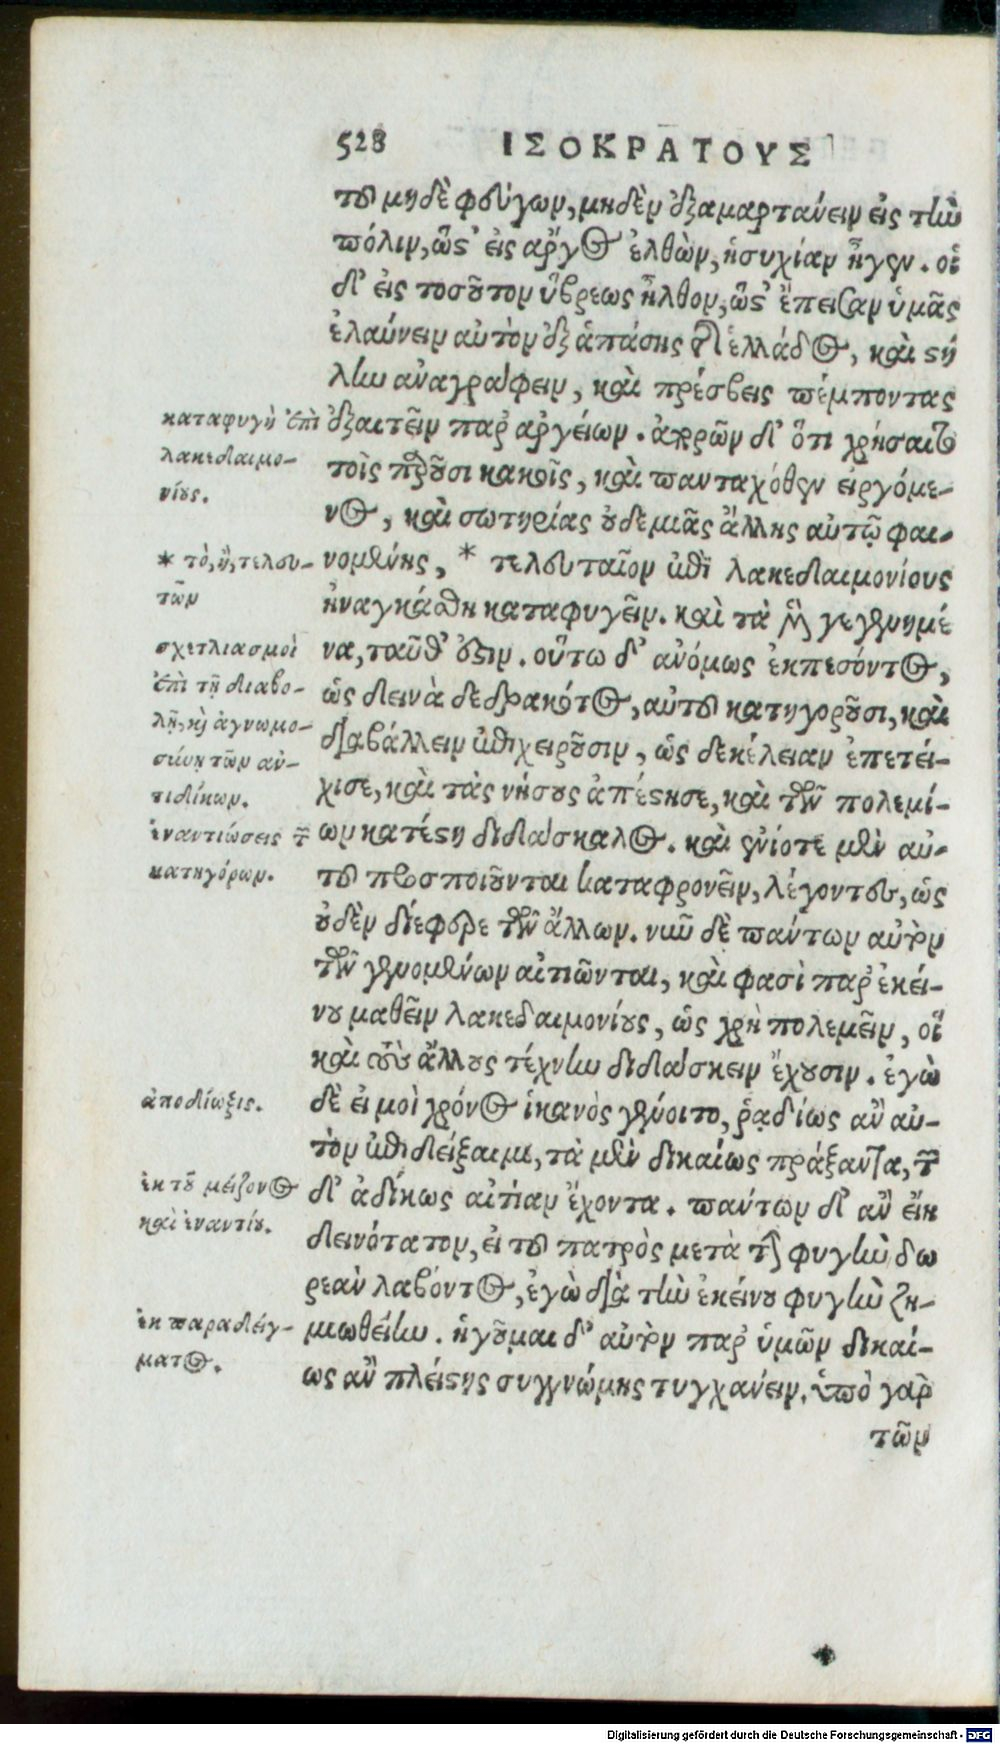 528 ΙΣΟΚΡΑΤΟΥΣ
του μηδὲ φεύγων, μηδὲν ἐξαμαρτάνειν εἰς τὴν
πόλιν, ὥστ' εἰς ἄργος ἐλθὼν, ἡσυχίαν ἦγεν. οἱ
δ' εἰς τοσοῦτον ὕβρεως ἦλθον, ὥστ' ἔπεισαν ὑμᾶς
ἐλαύνειν αὐτὸν ἐξ ἁπάσης τῆς ἑλλάδος, καὶ στή
λην ἀναγράφειν, καὶ πρέσβεις πέμποντας
ἐξαιτεῖν παρ' ἀργείων. ἀπορῶν δ' ὅτι χρήσαιτο
τοῖς παροῦσι κακοῖς, καὶ πανταχόθεν εἰργόμε-
νος, καὶ σωτηρίας οὐδεμιᾶς ἄλλης αὐτῷ φαι-
νομένης, * τελευταῖον ἐπὶ λακεδαιμονίους
ἠναγκάσθη καταφυγεῖν. καὶ τὰ μὲν γεγενημέ
να, ταῦθ' ἐστιν. οὕτω δ' ἀνόμως ἐκπεσόντος,
ὡς δεινὰ δεδρακότος, αὐτοῦ κατηγοροῦσι, καὶ
διαβάλλειν ἐπιχειροῦσιν, ὡς δεκέλειαν ἐπετεί-
χισε, καὶ τὰς νήσους ἀπέστησε, καὶ τῶν πολεμί-
ων κατέστη διδάσκαλος. καὶ ἐνίοτε μὲν αὐ-
τοῦ προσποιοῦνται καταφρονεῖν, λέγοντες, ὡς
οὐδὲν διέφερε τῶν ἄλλων. νυνὶ δὲ πάντων αὐτὸν
τῶν γενομένων αἰτιῶνται, καὶ φασὶ παρ' ἐκεί-
νου μαθεῖν λακεδαιμονίους, ὡς χρὴ πολεμεῖν, οἳ
καὶ τοὺς ἄλλους τέχνην διδάσκειν ἔχουσιν. ἐγὼ
δὲ εἴ μοὶ χρόνος ἱκανὸς γένοιτο, ῥᾳδίως ἂν αὐ-
τὸν ἐπιδείξαιμι, τὰ μὲν δικαίως πράξαντα, τῶν
δ' ἀδίκως αἰτίαν ἔχοντα. πάντων δ' ἂν εἴη
δεινότατον, εἰ τοῦ πατρὸς μετὰ τὴν φυγὴν δω
ρεὰν λαβόντος, ἐγὼ διὰ τὴν ἐκείνου φυγὴν ζη-
μιωθείην. ἡγοῦμαι δ' αὐτὸν παρ' ὑμῶν δικαί-
ως ἂν πλείστης συγγνώμης τυγχάνειν. ὑπὸ γὰρ
τῶν
καταφυγὴ ἐπὶ
λακεδαιμο-
νίους.
* τὸ, ἢ, τελευ-
τῶν
σχετλιασμοὶ
ἐπὶ τῇ διαβο-
λῇ, καὶ ἀγνωμο-
σύνῃ τῶν ἀν-
τιδίκων.
ἐναντιώσεις τῶν
κατηγόρων.
ἀποδίωξις.
ἐκ τοῦ μείζονος
καὶ ἐναντίου.
ἐκ παραδείγ-
ματος.
Digitalisierung gefördert durch die Deutsche Forschungsgemeinschaft - DFG